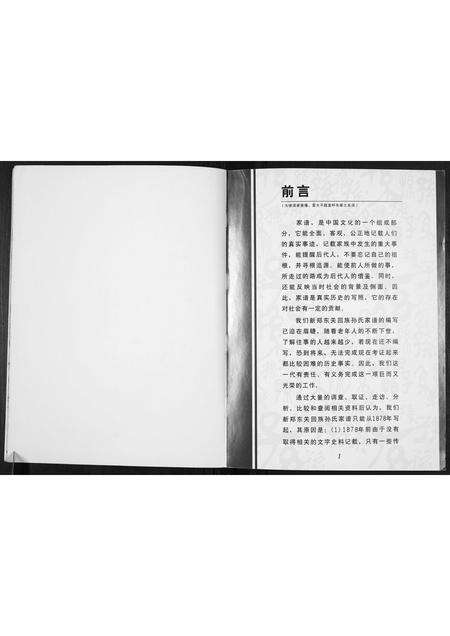 前言
家谱，是中国文化的一个组成部
分，它能全面、客观、公正地记载人们
的真实事迹，记载家族中发生的重大事
件，能提醒后代人，不要忘记自己的祖
根，并寻根追源，能使前人所做的事，
所走过的路成为后代人的借鉴。同时，
还能反映当时社会的背景及侧面。因
此，家谱是真实历史的写照，它的存在
对社会有一定的贡献。
我们新郑东关回族孙氏家谱的编写
已迫在眉睫，随着老年人的不断下世，
了解往事的人越来越少，若现在还不编
写，恐到将来，无法完成现在考证起来
都比较困难的历史事实。因此，我们这
一代有责任、有义务完成这一艰巨而又
光荣的工作。
通过大量的调查、取证、走访、分
析、比较和查阅相关资料后认为，我们
新郑东关回族孙氏家谱只能从1878年写
起，其原因是：(1)1878年前由于没有
取得相关的文字史料记载，只有一些传
1